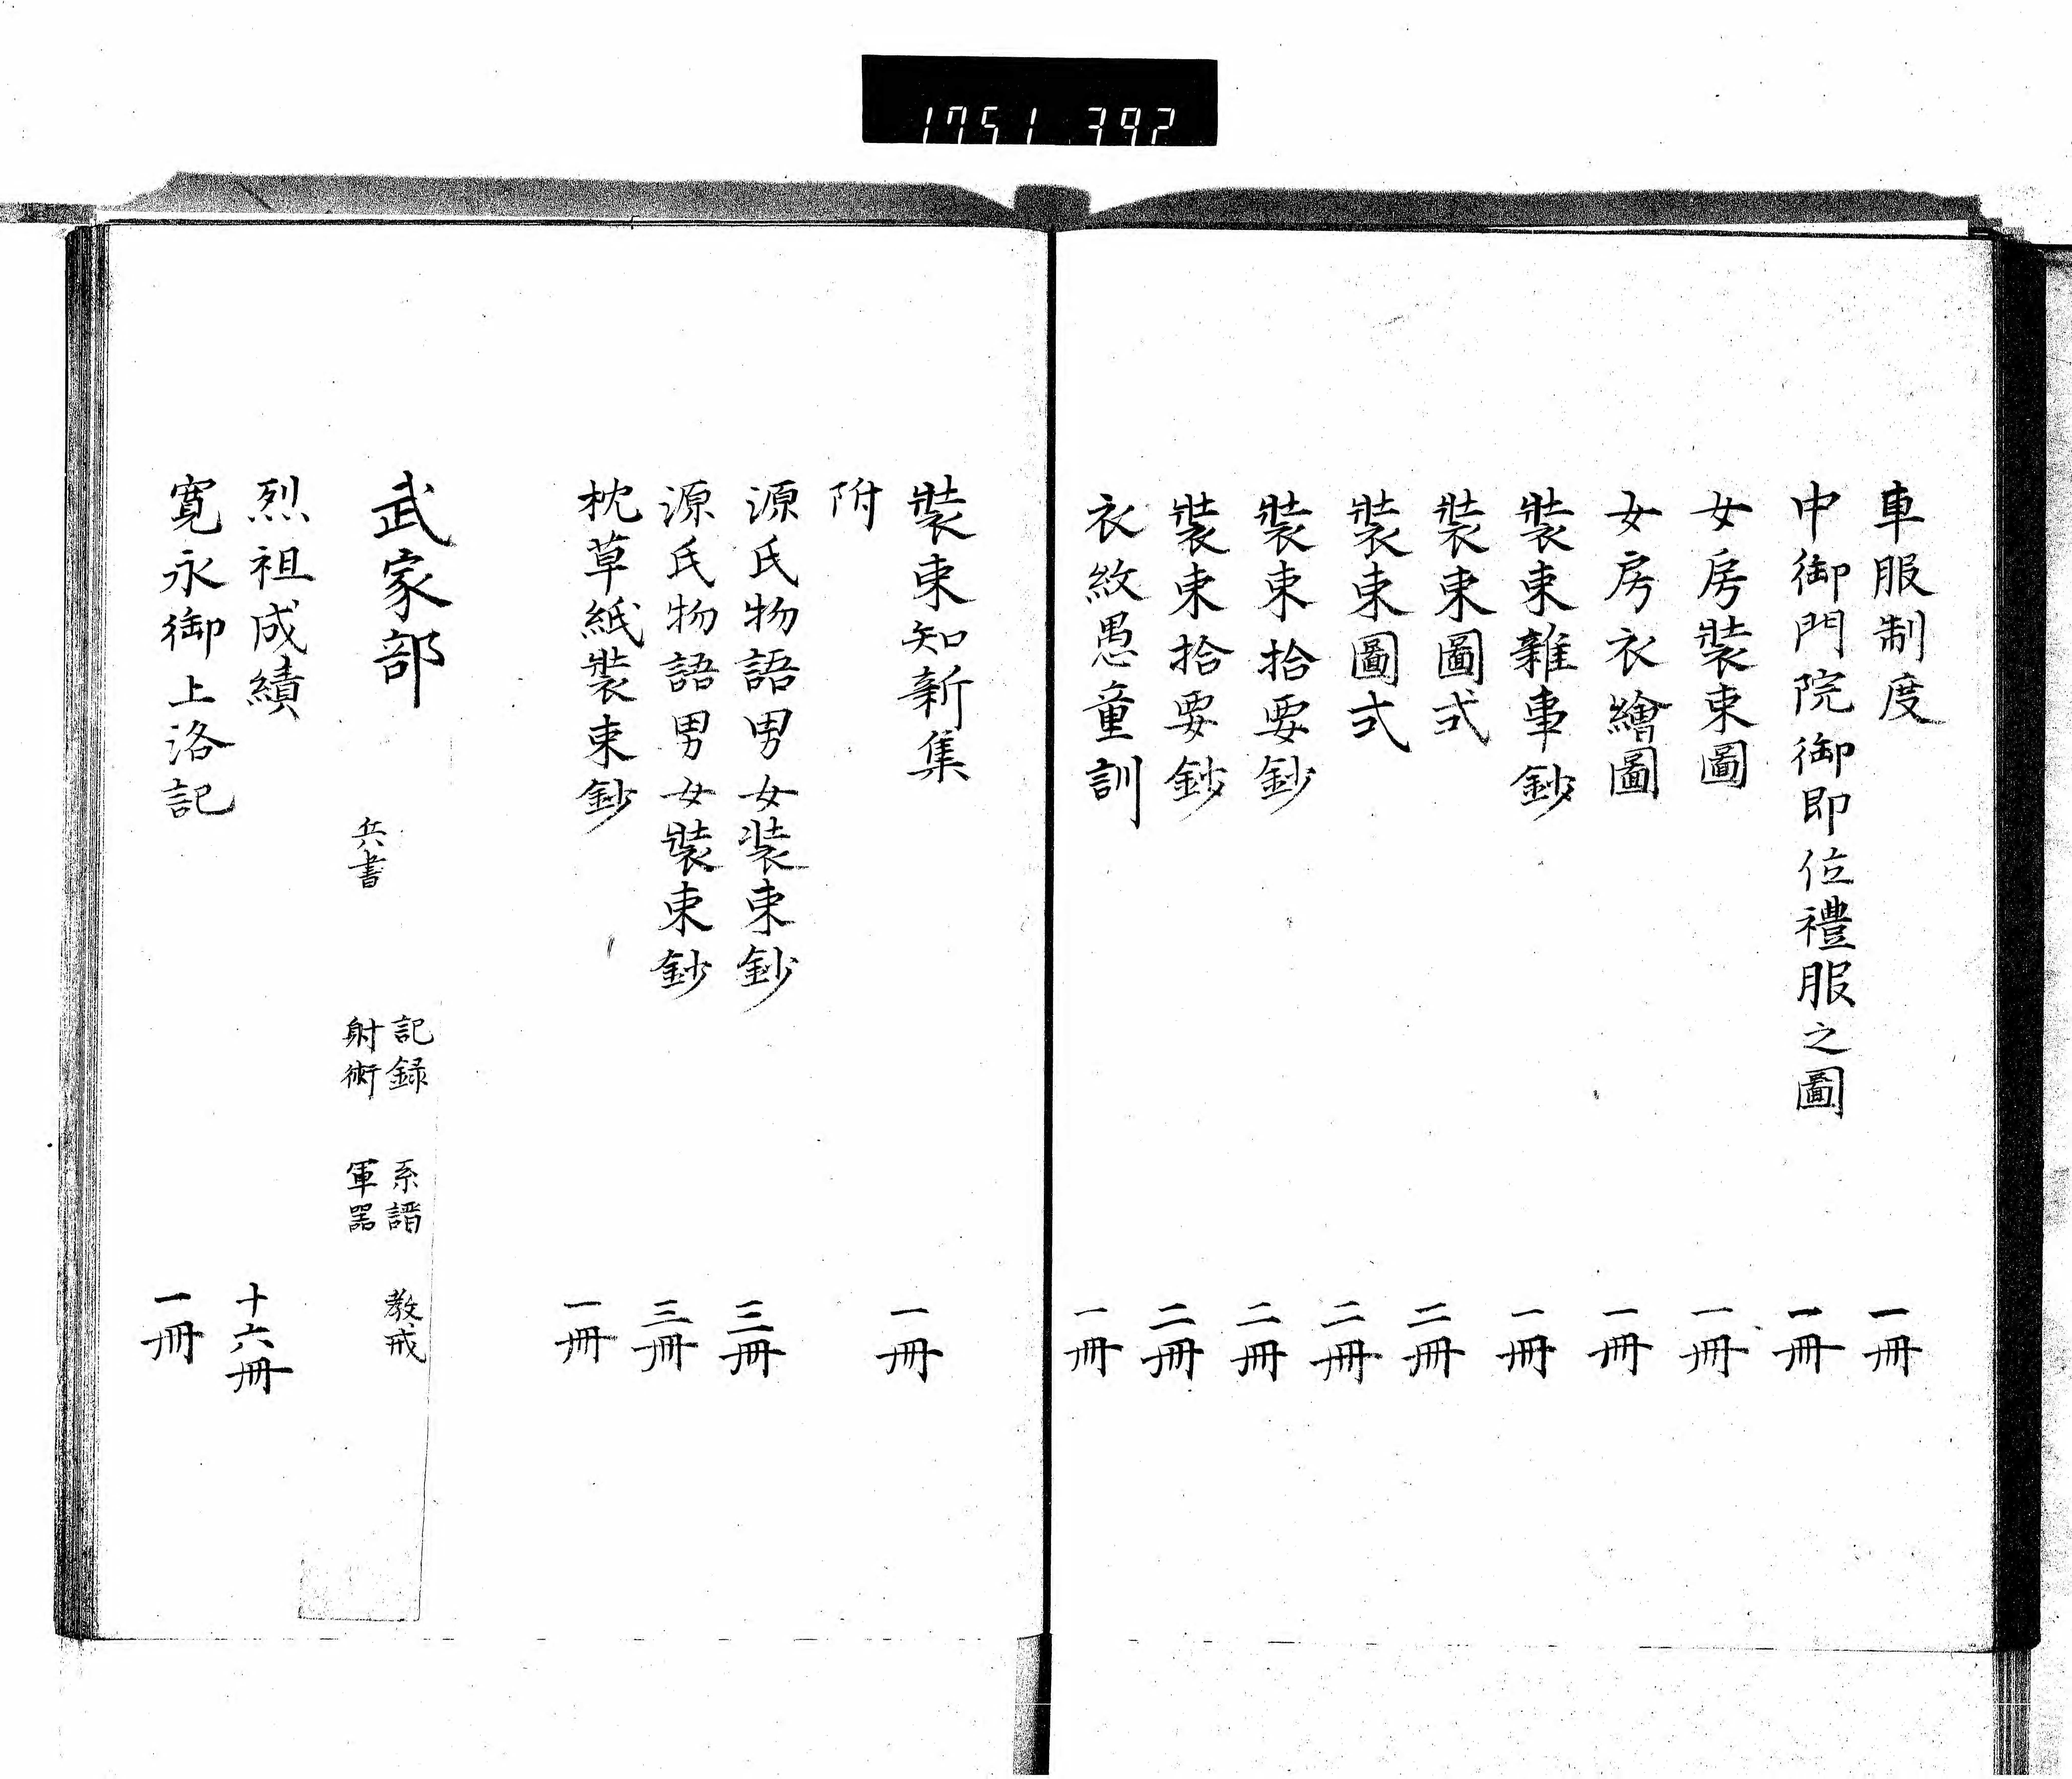 1751 392
車服制度 一冊
中御門院御即位禮服之圖 一冊
女房裝束圖 一冊
女房衣繪圖 一冊
裝束雜事鈔 一冊
裝束圖式 二冊
裝束圖式 二冊
裝束拾要鈔 二冊
裝束拾要鈔 二冊
衣紋愚童訓 一冊
裝束知新集 一冊
附
源氏物語男女裝束鈔 三冊
源氏物語男女裝束鈔 三冊
枕草紙裝束鈔 一冊
武家部
記録 系譜 教戒
兵書 射術 軍器
烈祖成績 十六冊
寛永御上洛記 一冊